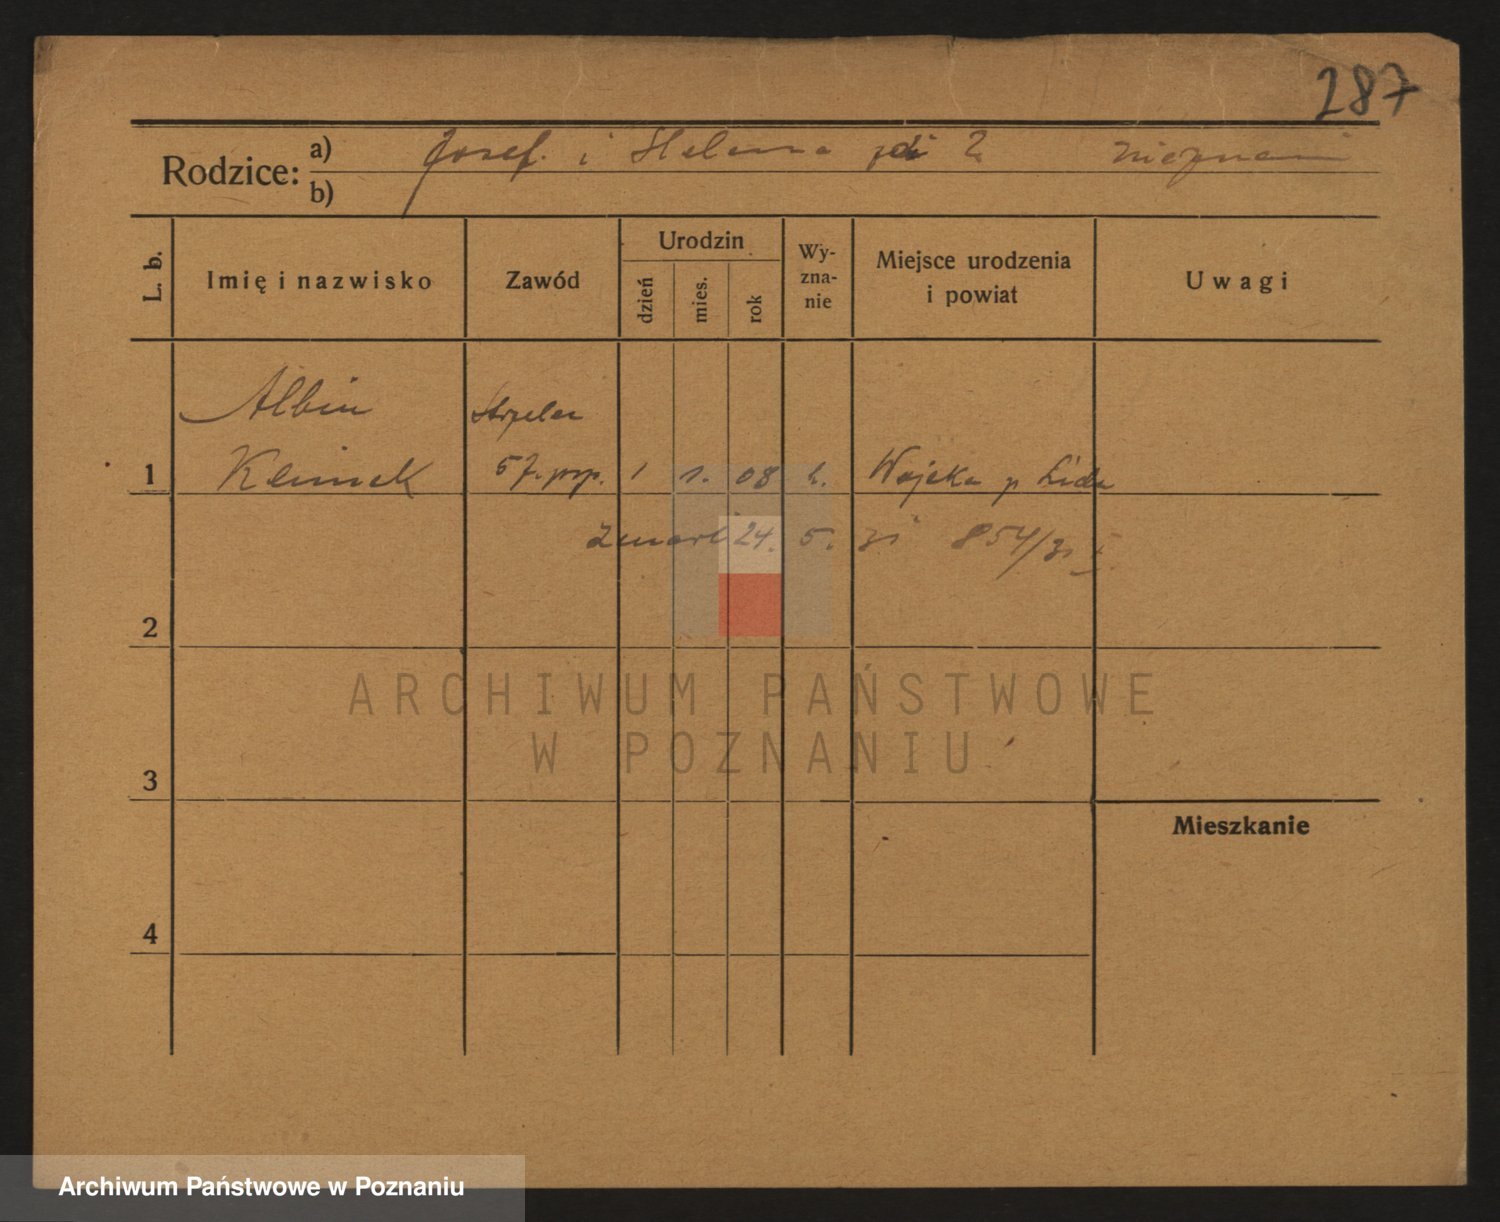 287
Rodzice: a) Josef i Helena nieznani
b)
L. b.
Imię i nazwisko
Zawód
Urodzin
dzień
mies.
rok
Wy-
zna-
nie
Miejsce urodzenia
i powiat
Uwagi
Albin
Strzelec
1
Klimek
57. p.p. 1 1. 08 k. Wojska p Lida
zmarł 24. 5. 31 854/31
2
ARCHIWUM PAŃSTWOWE
W POZNANIU
3
Mieszkanie
4
Archiwum Państwowe w Poznaniu